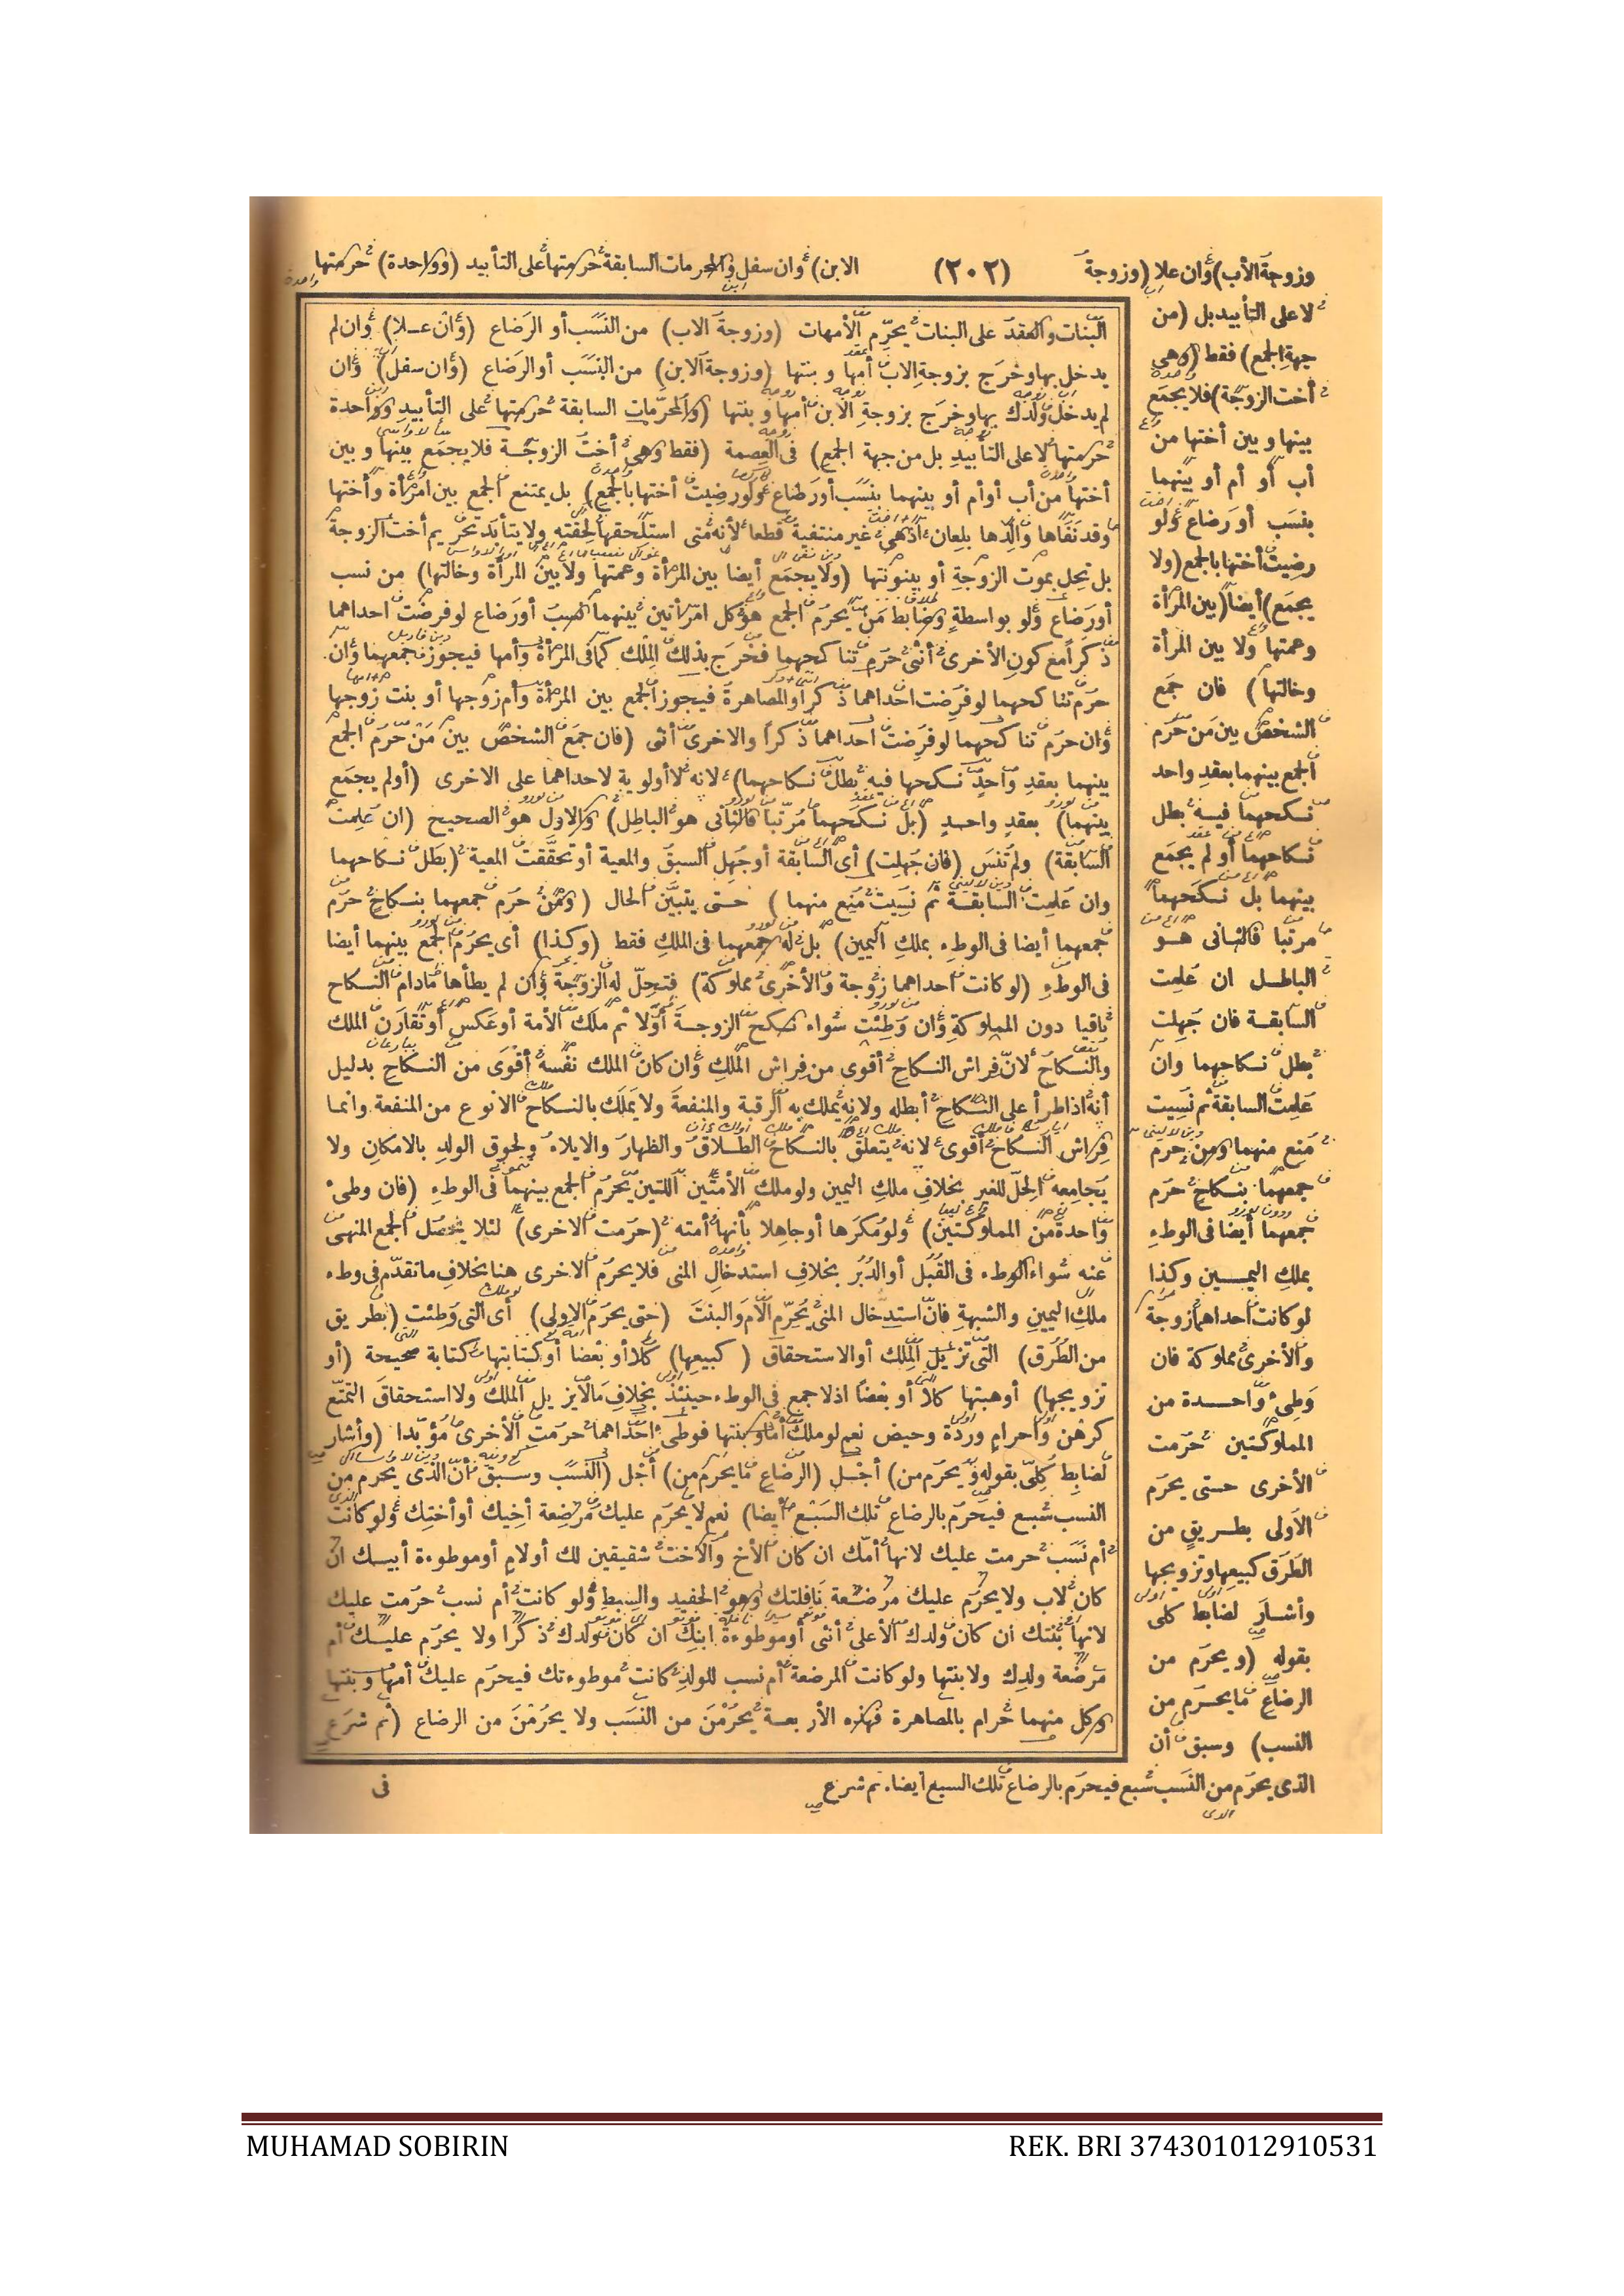 وزوجة الأب) وان علا (وزوجة (٢٠٢) الابن) وان سفل والمحرمات السابقة حرمتها على التأبيد (وواحدة) حرمتها
لا على التأبيد بل (من
جهة الجمع) فقط (وهى
أخت الزوجة) فلا يجمع
بينها وبين أختها من
أب أو أم أو بينهما
بنسب أو رضاع ولو
رضيت أختها بالجمع (ولا
يجمع) أيضا (بين المرأة
وعمتها ولا بين المرأة
وخالتها) فان جمع
الشخص بين من حرم
الجمع بينهما بعقد واحد
نكحهما فيه بطل
نكاحهما أو لم يجمع
بينهما بل نكحهما
مرتبا فالثانى هو
الباطل ان علمت
السابقة فان جهلت
بطل نكاحهما وان
علمت السابقة ثم نسيت
منع منهما ومن حرم
جمعهما بنكاح حرم
جمعهما أيضا فى الوطء
بملك اليمين وكذا
لو كانت احداهما زوجة
والأخرى مملوكة فان
وطئ واحدة من
المملوكتين حرمت
الأخرى حتى يحرم
الأولى بطريق من
الطرق كبيعها وتزويجها
وأشار لضابط كلى
بقوله (ويحرم من
الرضاع ما يحرم من
النسب) وسبق أن
الذى يحرم من النسب سبع فيحرم بالرضاع تلك السبع أيضا. ثم شرع
البنات والعقد على البنات يحرّم الأمهات (وزوجة الاب) من النسب أو الرضاع (وان علا) وان لم
يدخل بها وخرج بزوجة الاب أمها وبنتها (وزوجة الابن) من النسب أو الرضاع (وان سفل) وان
لم يدخل ولدك بها وخرج بزوجة الابن أمها وبنتها (والمحرّمات السابقة حرمتها على التأبيد وواحدة
حرمتها لا على التأبيد بل من جهة الجمع) فى العصمة (فقط وهى أخت الزوجة فلا يجمع بينها وبين
أختها من أب أو أم أو بينهما بنسب أو رضاع ولو رضيت أختها بالجمع) بل يمتنع الجمع بين امرأة وأختها
وقد نفاها والدها بلعان اذ هى غير منتفية قطعا لأنه متى استلحقها لحقته ولا يتأبد تحريم أخت الزوجة
بل تحل بموت الزوجة أو بينونتها (ولا يجمع أيضا بين المرأة وعمتها ولا بين المرأة وخالتها) من نسب
أو رضاع ولو بواسطة وضابط من يحرم الجمع هو كل امرأتين بينهما نسب أو رضاع لو فرضت احداهما
ذكرا مع كون الأخرى أنثى حرم تناكحهما فخرج بذلك الملك كما فى المرأة وأمها فيجوز جمعهما وان
حرم تناكحهما لو فرضت احداهما ذكرا والمصاهرة فيجوز الجمع بين المرأة وأم زوجها أو بنت زوجها
وان حرم تناكحهما لو فرضت احداهما ذكرا والاخرى أنثى (فان جمع الشخص بين من حرم الجمع
بينهما بعقد واحد نكحها فيه بطل نكاحهما) لانه لا أولوية لاحداهما على الاخرى (أو لم يجمع
بينهما) بعقد واحد (بل نكحهما مرتبا فالثانى هو الباطل) والاول هو الصحيح (ان علمت
السابقة) ولم تنس (فان جهلت) أى السابقة أو جهل السبق والمعية أو تحققت المعية (بطل نكاحهما
وان علمت السابقة ثم نسيت منع منهما) حتى يتبين الحال (ومن حرم جمعهما بنكاح حرم
جمعهما أيضا فى الوطء بملك اليمين) بل له جمعهما فى الملك فقط (وكذا) أى يحرم الجمع بينهما أيضا
فى الوطء (لو كانت احداهما زوجة والأخرى مملوكة) فتحل له الزوجة وان لم يطأها مادام النكاح
باقيا دون المملوكة وان وطئت سواء نكح الزوجة أولا ثم ملك الأمة أو عكس أو تقارن الملك
والنكاح لان فراش النكاح أقوى من فراش الملك وان كان الملك نفسه أقوى من النكاح بدليل
أنه اذا طرأ على النكاح أبطله ولانه يملك به الرقبة والمنفعة ولا يملك بالنكاح الا نوع من المنفعة وانما
فراش النكاح أقوى لانه يتعلق بالنكاح الطلاق والظهار والايلاء ولحوق الولد بالامكان ولا
يجامعه الحل للغير بخلاف ملك اليمين ولو ملك الأمتين اللتين يحرم الجمع بينهما فى الوطء (فان وطئ
واحدة من المملوكتين) ولو مكرها أو جاهلا بأنها أمته (حرمت الاخرى) لئلا يحصل الجمع المنهى
عنه سواء الوطء فى القبل أو الدبر بخلاف استدخال المنى فلا يحرم الاخرى هنا بخلاف ما تقدم فى وطء
ملك اليمين والشبهة فان استدخال المنى يحرّم الأم والبنت (حتى يحرم الاولى) أى التى وطئت (بطريق
من الطرق) التى تزيل الملك أو الاستحقاق (كبيعها) كلا أو بعضا أو كتابتها كتابة صحيحة (أو
تزويجها) أو هبتها كلا أو بعضا اذ لا جمع فى الوطء حينئذ بخلاف ما لا يزيل الملك ولا استحقاق التمتع
كرهن واحرام وردة وحيض نعم لو ملك أما وبنتها فوطئ احداهما حرمت الأخرى مؤبدا (وأشار
لضابط كلىّ بقوله ويحرم من) أجل (الرضاع ما يحرم من) أجل (النسب وسبق أن الذى يحرم من
النسب سبع فيحرم بالرضاع تلك السبع أيضا) نعم لا يحرم عليك مرضعة أخيك أو أختك ولو كانت
أم نسب حرمت عليك لانها أمك ان كان الأخ والأخت شقيقين لك أو لام أو موطوءة أبيك ان
كان لاب ولا يحرم عليك مرضعة نافلتك وهو الحفيد والسبط ولو كانت أم نسب حرمت عليك
لانها بنتك ان كان ولدك الأعلى أنثى أو موطوءة ابنك ان كان ولدك ذكرا ولا يحرم عليك أم
مرضعة ولدك ولا بنتها ولو كانت المرضعة أم نسب للولد كانت موطوءتك فيحرم عليك أمها وبنتها
وكل منهما حرام بالمصاهرة فهذه الأربعة يحرمن من النسب ولا يحرمن من الرضاع (ثم شرع
فى
MUHAMAD SOBIRIN REK. BRI 374301012910531